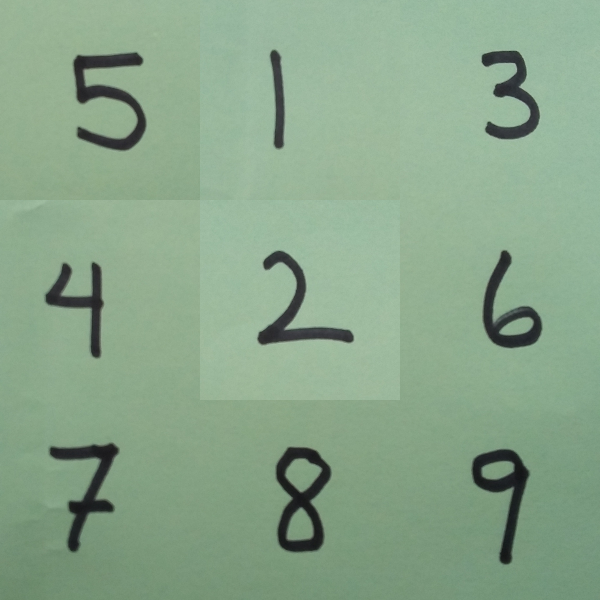 5 1 3
4 2 6
7 8 9